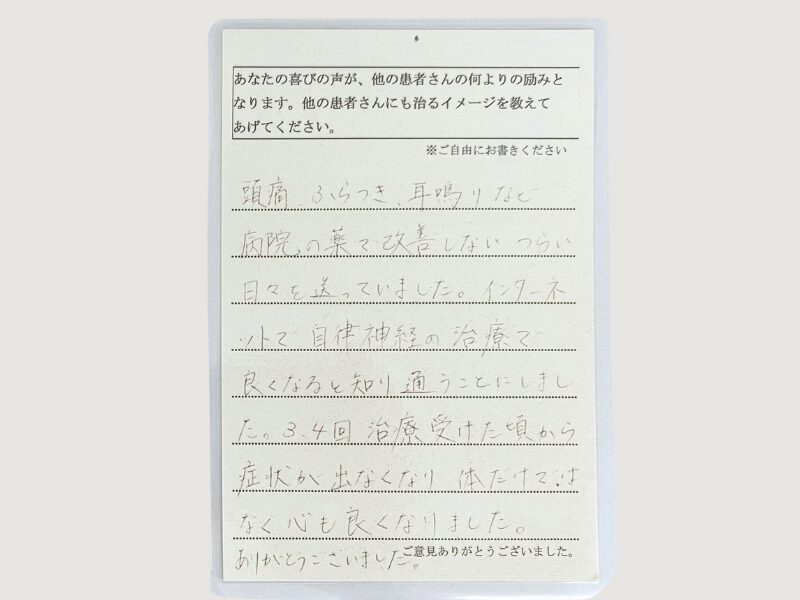 あなたの喜びの声が、他の患者さんの何よりの励みと
なります。他の患者さんにも治るイメージを教えて
あげてください。
※ご自由にお書きください
頭痛、ふらつき、耳鳴りなど
病院の薬で改善しない つらい
日々を送っていました。インターネ
ットで 自律神経の 治療で
良くなると知り 通うことにしまし
た。3、4回 治療 受けた頃から
症状が 出なくなり 体だけでは
なく 心も 良くなりました。
ご意見ありがとうございました。
ありがとうございました。